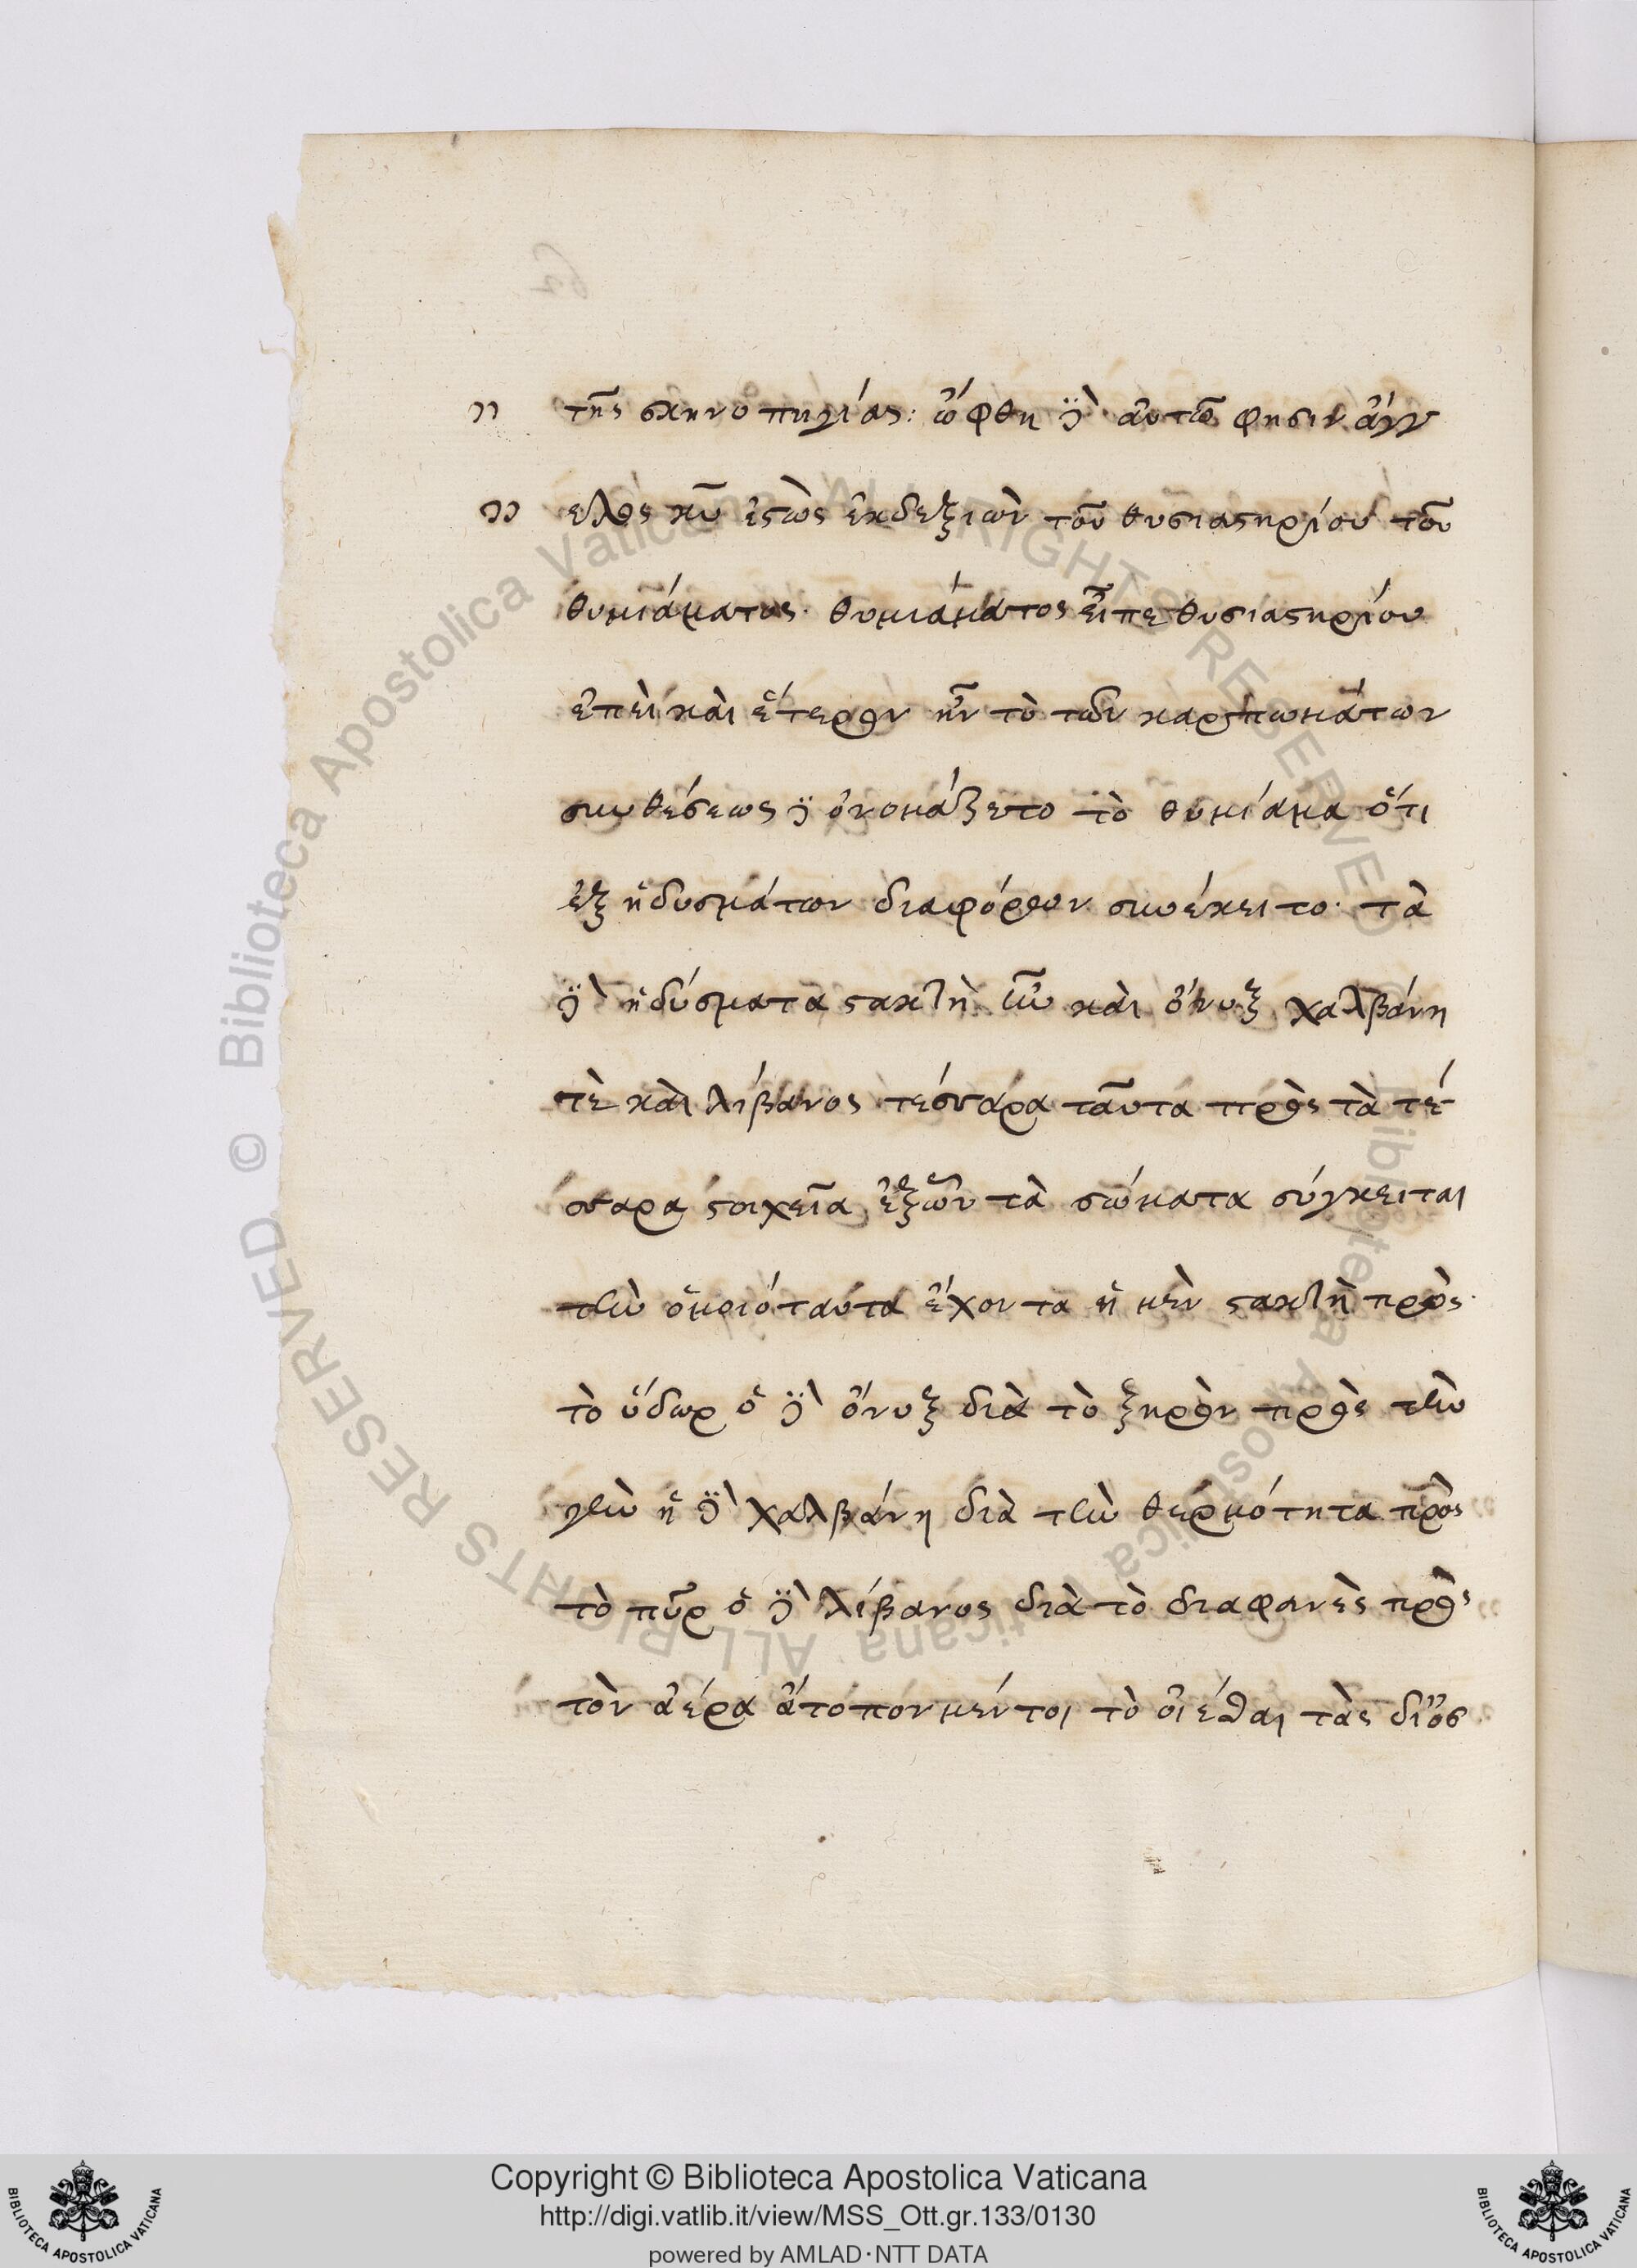 τῆς σκηνοπηγίας: ὤφθη δὲ αὐτῶ φησιν ἄγγ
ελος κυ ἐστὼς ἐκδεξιῶν τοῦ θυσιαστηρίου τοῦ
θυμιάματος· θυμιάματος εἶπε θυσιαστηρίου
ἐπεὶ καὶ ἕτερον ἦν τὸ τῶν καρπωμάτων
συνθέσεως δὲ ὀνομάζετο τὸ θυμίαμα ὅτι
ἐξ ἡδυσμάτων διαφόρων συνέκειτο· τὰ
δὲ ἡδύσματα στακτὴ ἦν καὶ ὄνυξ χαλβάνη
τὲ καὶ λίβανος τέσσαρα ταῦτα πρὸς τὰ τέ
σσαρα στοιχεῖα ἐξὧν τὰ σώματα σύγκειται
τὴν ὁμοιόταυτα ἔχοντα ἡ μὲν στακτὴ πρὸς·
τὸ ὕδωρ ὁ δὲ ὄνυξ διὰ τὸ ξηρὸν πρὸς τὴν
γῆν ἡ δὲ χαλβάνη διὰ τὴν θερμότητα πρὸς
τὸ πῦρ ὁ δὲ λίβανος διὰ τὸ διαφανὲς πρὸς
τὸν ἀέρα ἄτοπον μέντοι τὸ οἴεσθαι τὰς διοσ
Copyright © Biblioteca Apostolica Vaticana
http://digi.vatlib.it/view/MSS_Ott.gr.133/0130
powered by AMLAD·NTT DATA
BIBLIOTECA APOSTOLICA VATICANA
BIBLIOTECA APOSTOLICA VATICANA
© Biblioteca Apostolica Vaticana ALL RIGHTS RESERVED
© Biblioteca Apostolica Vaticana ALL RIGHTS RESERVED